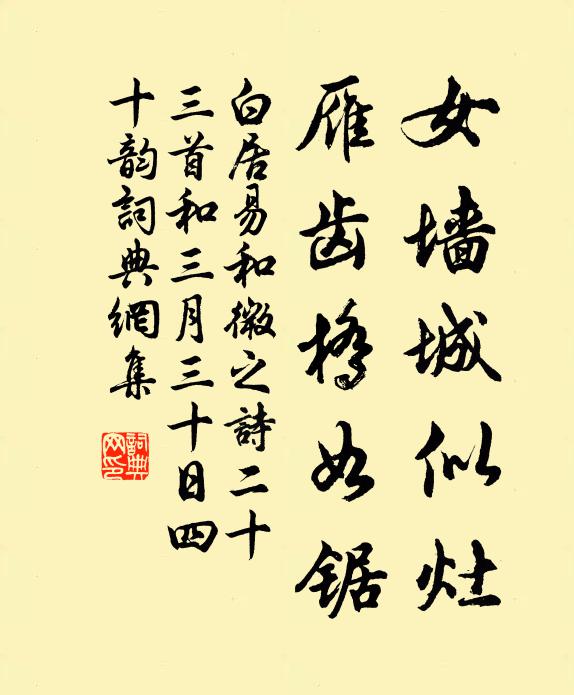 女墙城似灶
雁齿桥如锯
白居易和微之詩二十
三首和三月三十日四
十韵詞典網集
詞典
网印